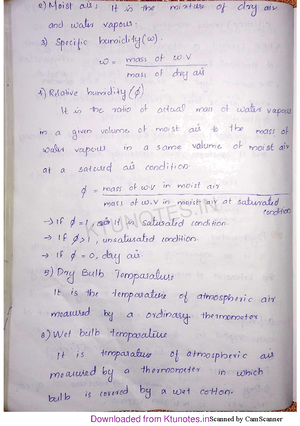 2) Moist air: It is the mixture of dry air
and water vapour.
3) Specific humidity (ω).
ω = mass of w.v
mass of dry air
4) Relative humidity (ϕ)
It is the ratio of actual mass of water vapour
in a given volume of moist air to the mass of
water vapour in a same volume of moist air
at a satured air condition.
ϕ = mass of w.v in moist air
mass of w.v in moist air at saturated
condition
→ If ϕ = 1, air is in saturated condition.
→ If ϕ > 1, unsaturated condition.
→ If ϕ = 0, dry air
5) Dry Bulb Temparature
It is the temparature of atmospheric air
measured by a ordinary thermometer.
6) Wet bulb temparature
It is temparature of atmospheric air
measured by a thermometer in which
bulb is covered by a wet cotton.
KTUNOTES.IN
Downloaded from Ktunotes.in Scanned by CamScanner